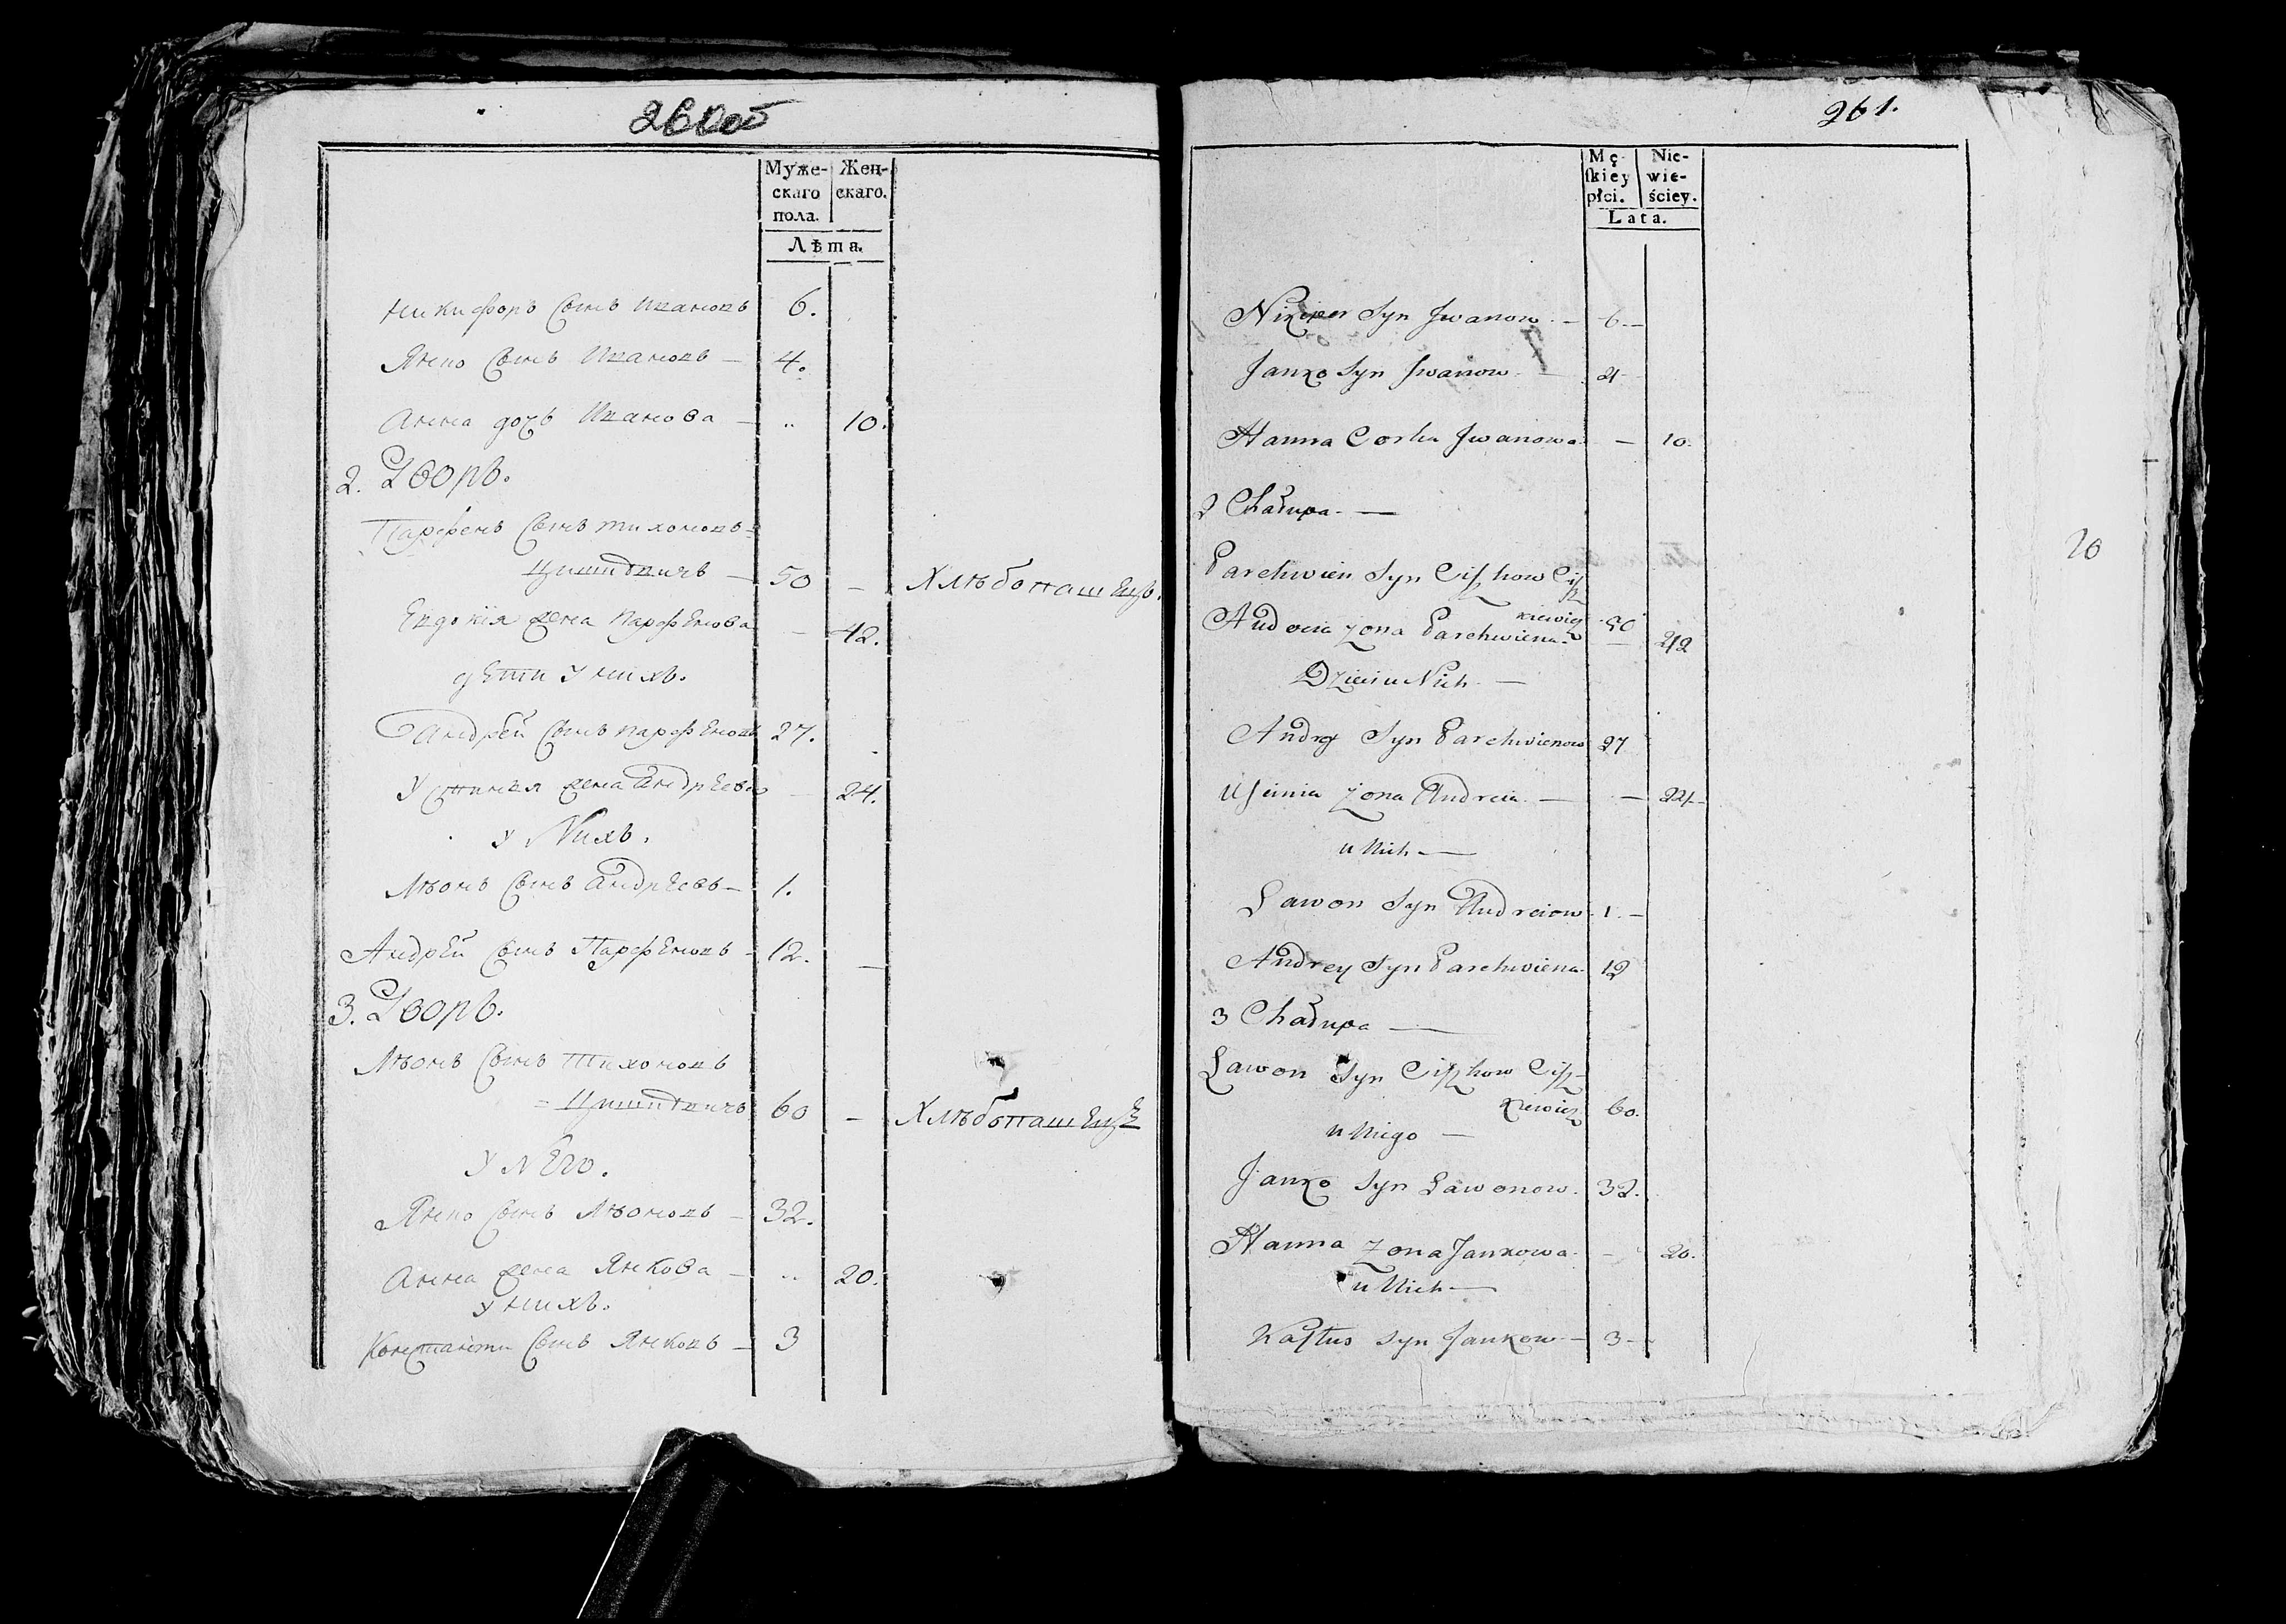 260об
Муже-
скаго
пола.
Жен-
скаго.
Лѣта.
Никифоръ Сынъ Ивановъ 6.
Янко Сынъ Ивановъ — 4.
Анна дочь Иванова — „ 10.
2. Дворъ.
Парфенъ Сынъ тихоновъ =
Цишкевичъ — 50 — Хлѣбопашецъ.
Евдокія жена парфенова — 42.
дети У нихъ.
Андрей Сынъ парфеновъ 27.
Устинья жена Андреева — 24.
у Нихъ.
Лѣонъ Сынъ Андреевъ — 1.
Андрей Сынъ Парфеновъ — 12. —
3. Дворъ.
Лѣонъ Сынъ Тихоновъ
= Цишкевичъ 60 — Хлѣбопашецъ
У Него.
Янко Сынъ Лѣоновъ — 32.
Анна жена Янкова — „ 20.
У нихъ.
Константи Сынъ Янковъ — 3
261.
Mę-
ſkiey
płci.
Nie-
wie-
ściey.
Lata.
Syn Jwanow — 6 —
Janko Syn Jwanow — 4
Hanna Corka Jwanowa — 10.
2 Chałupa —
20
Parchwien Syn Ciſzkow Ciſz
kiewicz 50
Audocia Zona Parchwiena — 42
Dzieci u Nich —
Andrey Syn Parchwienow 27
Uſcinia Zona Andreia — — 24 —
u Nich —
Lawon Syn Andreiow 1. —
Andrey Syn Parchwiena 12
3 Chałupa —
Lawon Syn Ciſzkow Ciſz-
kiewicz 60.
u Niego —
Janko Syn Lawonow. 32.
Hanna Zona Jankowa — 20.
u Nich —
Kaſtus Syn Jankow — 3 —